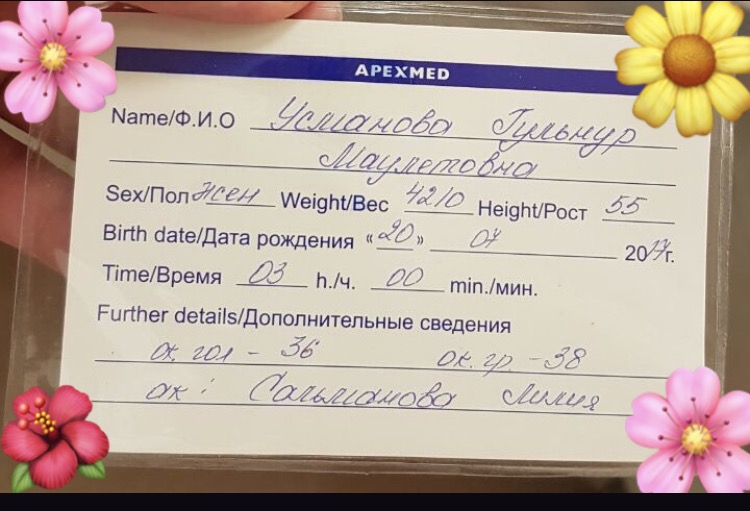 APEXMED
Name/Ф.И.О Усманова Гульнур
Маулетовна
Sex/Пол жен Weight/Вес 4210 Height/Рост 55
Birth date/Дата рождения «20» 07 2017г.
Time/Время 03 h./ч. 00 min./мин.
Further details/Дополнительные сведения
ок. гол - 36 ок. гр. - 38
ак: Сальманова Лилия